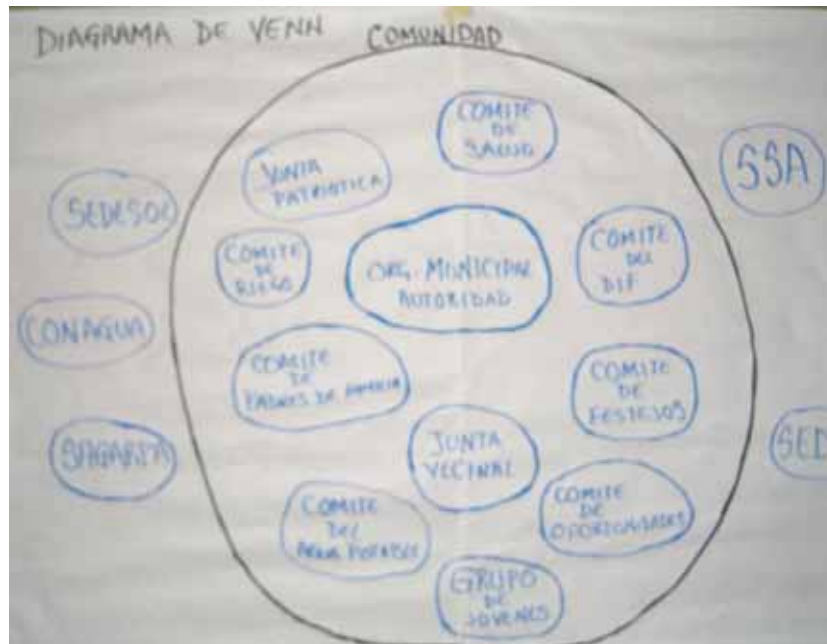 DIAGRAMA DE VENN
COMUNIDAD
COMITE
DE
SALUD
JUNTA
PATRIOTICA
SSA
SEDESOL
COMITE
DE
RIEGO
ORG. MUNICIPAL
AUTORIDAD
COMITE
DEL
DIF
CONAGUA
COMITE
DE
PADRES DE FAMILIA
COMITE
DE
FESTEJOS
SAGARPA
JUNTA
VECINAL
SED
COMITE
DEL
AGUA POTABLE
COMITE
DE
OPORTUNIDADES
GRUPO
DE
JOVENES